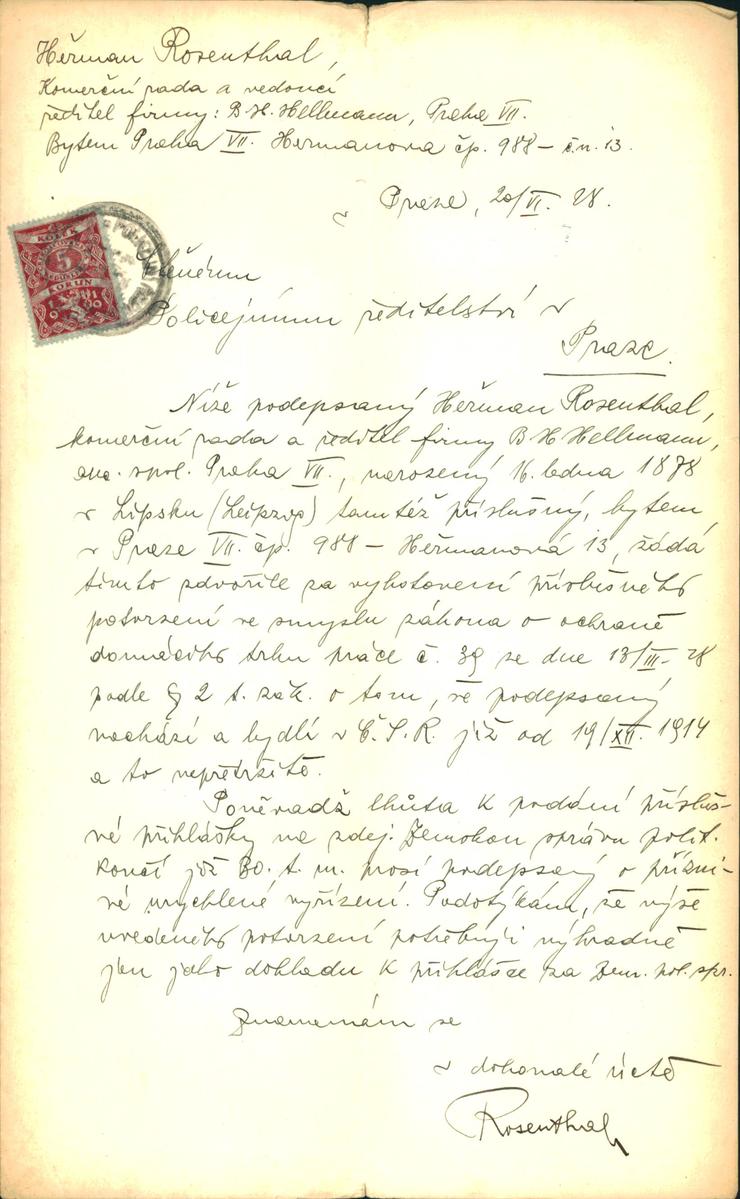 Heřman Rosenthal,
Komerční rada a vedoucí
ředitel firmy: B. H. Hellmann, Praha VII.
Bytem Praha VII. Heřmanova čp. 988 – č.n. 13.
v Praze, 20/VI. 28.
KOLEK
5
KORUN
1919
Slavnému
Policejnímu ředitelství v
Praze.
Níže podepsaný Heřman Rosenthal,
komerční rada a ředitel firmy B H Hellmann,
akc. spol. Praha VII., narozený 16. ledna 1878
v Lipsku (Leipzig) tamtéž příslušný, bytem
v Praze VII. čp. 988 – Heřmanová 13, žádá
tímto zdvořile za vyhotovení příslušného
potvrzení ve smyslu zákona o ochraně
domácího trhu práce č. 39 ze dne 13/III. 28
podle § 2 t. zák. o tom, že podepsaný
nachází a bydlí v Č. S. R. již od 19/XII. 1914
a to nepřetržitě.
Poněvadž lhůta k podání přísluš-
né přihlášky na zdej. Zemskou správu polit.
končí již 30. t. m. prosí podepsaný o přízni-
vé urychlené vyřízení. Podotýkám, že výše
uvedeného potvrzení potřebuji výhradně
jen jako dokladu k přihlášce za Zem. pol. spr.
Znamenám se
v dokonalé úctě
Rosenthal